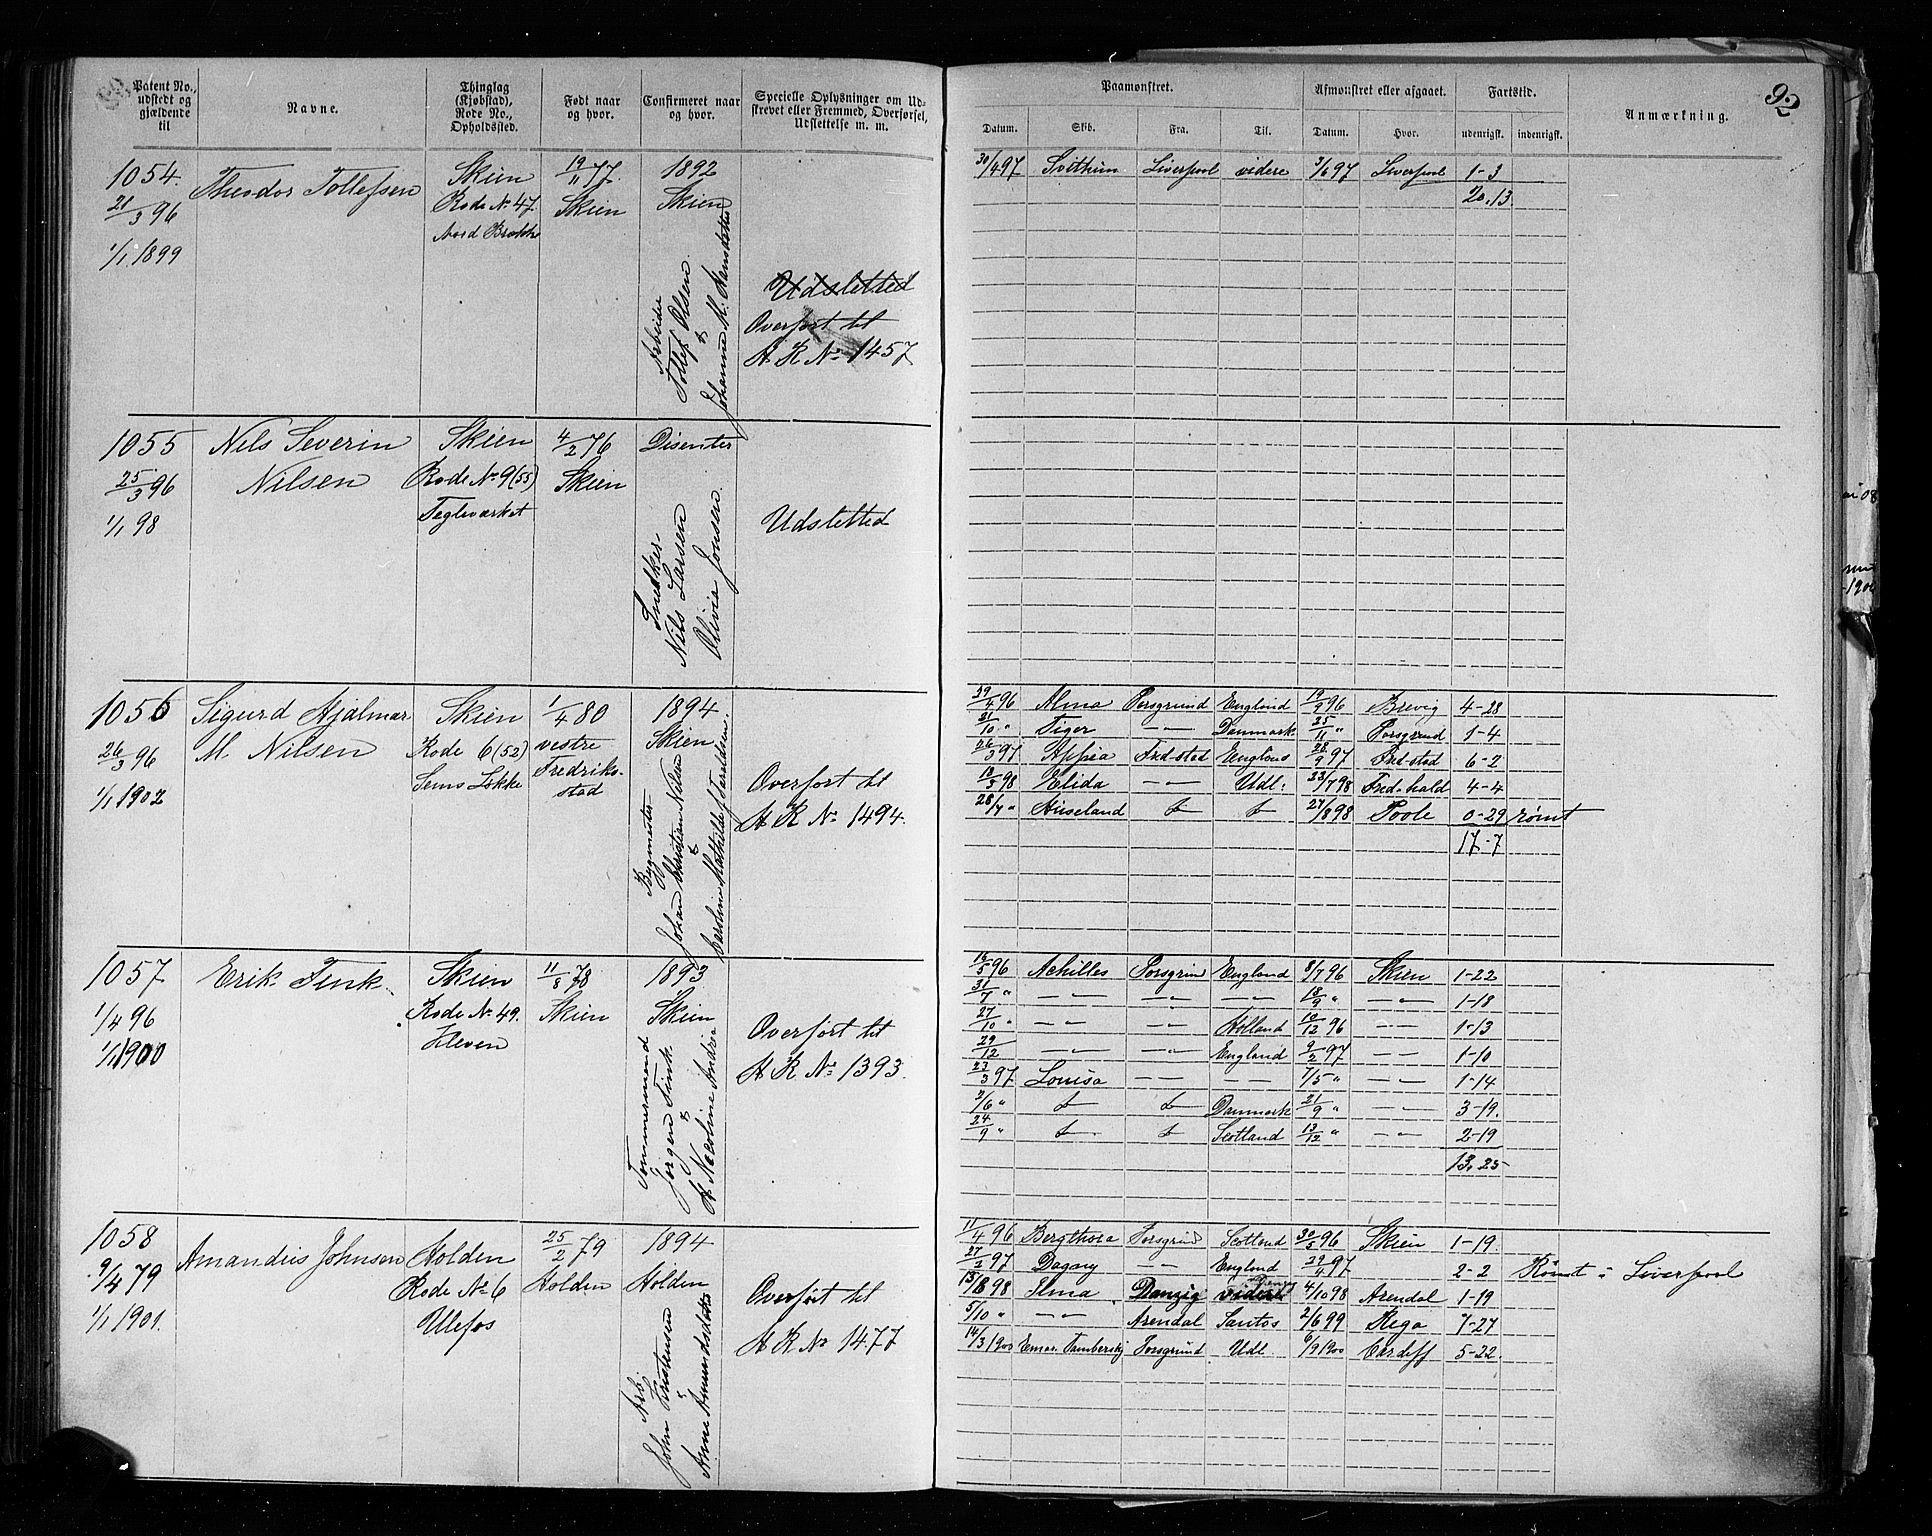 Patent No., udstedt og gjældende til
Navne.
Thinglag (Kjøbstad), Rode No., Opholdssted.
Født naar og hvor.
Confirmeret naar og hvor.
Specielle Oplysninger om Udskrevet eller Fremmed, Overførsel, Udslettelse m. m.
Paamønstret.
Afmønstret eller afgaaet.
Fartstid.
Anmærkning.
92
Datum. Skib. Fra. Til. Datum. Hvor. udenrigsk. indenrigsk.
1054.
21/3 96
1/1 1899
Theodor Tollefsen
Skien
Rode No 47.
Nord Brekke
19/11 77.
Skien
1892
Skien
Arbeider
Tollef Olsen
&
Johanne M. Hansdatter
Udsletted
Overført til
A K No 1457
30/4 97 Svithun Liverpool videre 3/6 97 Liverpool 1-3
20.13
1055
25/3 96
1/1 98
Nils Severin
Nilsen
Skien
Rode No 9 (55)
Teglværket
4/2 76
Skien
Disenter
Snedker
Nils Larsen
Olivia Jonsen
Udslettet
1056
26/3 96
1/1 1902
Sigurd Hjalmar
M. Nilsen
Skien
Rode 6 (52)
Sems Løkke
1/4 80
vestre
Fredrik-
stad
1894
Skien
Bygmester
Johan Christian Nilsen
&
Caroline Mathilde
Overført til
A K No 1494.
29/4 96 Alma Porsgrund England 19/9 96 Brevig 4-28
21/10 " Tiger —"— Danmark 25/11 " Porsgrund 1-4
26/3 97 Appia Fredstad England 28/9 97 Fredstad 6-2
18/3 98 Elida —"— Udl. 23/7 98 Fredhald 4-4
28/7 " Huseland 27/8 98 Poole 0-29 rømt
17-7
1057
1/4 96
1/1 1900
Erik Fink.
Skien
Rode No 49.
Kleven
11/8 78
Skien
1893
Skien
Tømmermand
Jørgen Fink
&
A Nicoline Andrea
Overført til
A K No 1393.
16/5 96 Achilles Porsgrund England 8/7 96 Skien 1-22
31/7 " —"— —"— —"— 18/9 " —"— 1-18
27/10 " —"— —"— Holland 10/12 96 —"— 1-13
29/12 —"— —"— England 9/2 97 —"— 1-10
23/3 97 Louisa —"— —"— 7/5 " —"— 1-14
2/6 " Danmark 21/9 " —"— 3-19.
24/9 " Scotland 13/12 " —"— 2-19
13.25
1058
9/4 79
1/1 1901.
Amandus Johnsen
Holden
Rode No 6
Ulefos
25/2 79
Holden
1894
Holden
Arb.
John Kristensen
Anne Amundsdatter
Overført til
A K No 1477
11/4 96 Bergthora Porsgrund Scotland 30/5 96 Skien 1-19
27/2 97 Dagny —"— England 29/4 97 2-2 Rømt i Liverpool
13/8 98 Ilma Danzig videre 4/10 98 Arendal 1-19
5/10 " —"— Arendal Santos 2/6 99 Riga 7-27
14/3 1900 Porsgrund Udl. 6/9 1900 Cardiff 5-22.